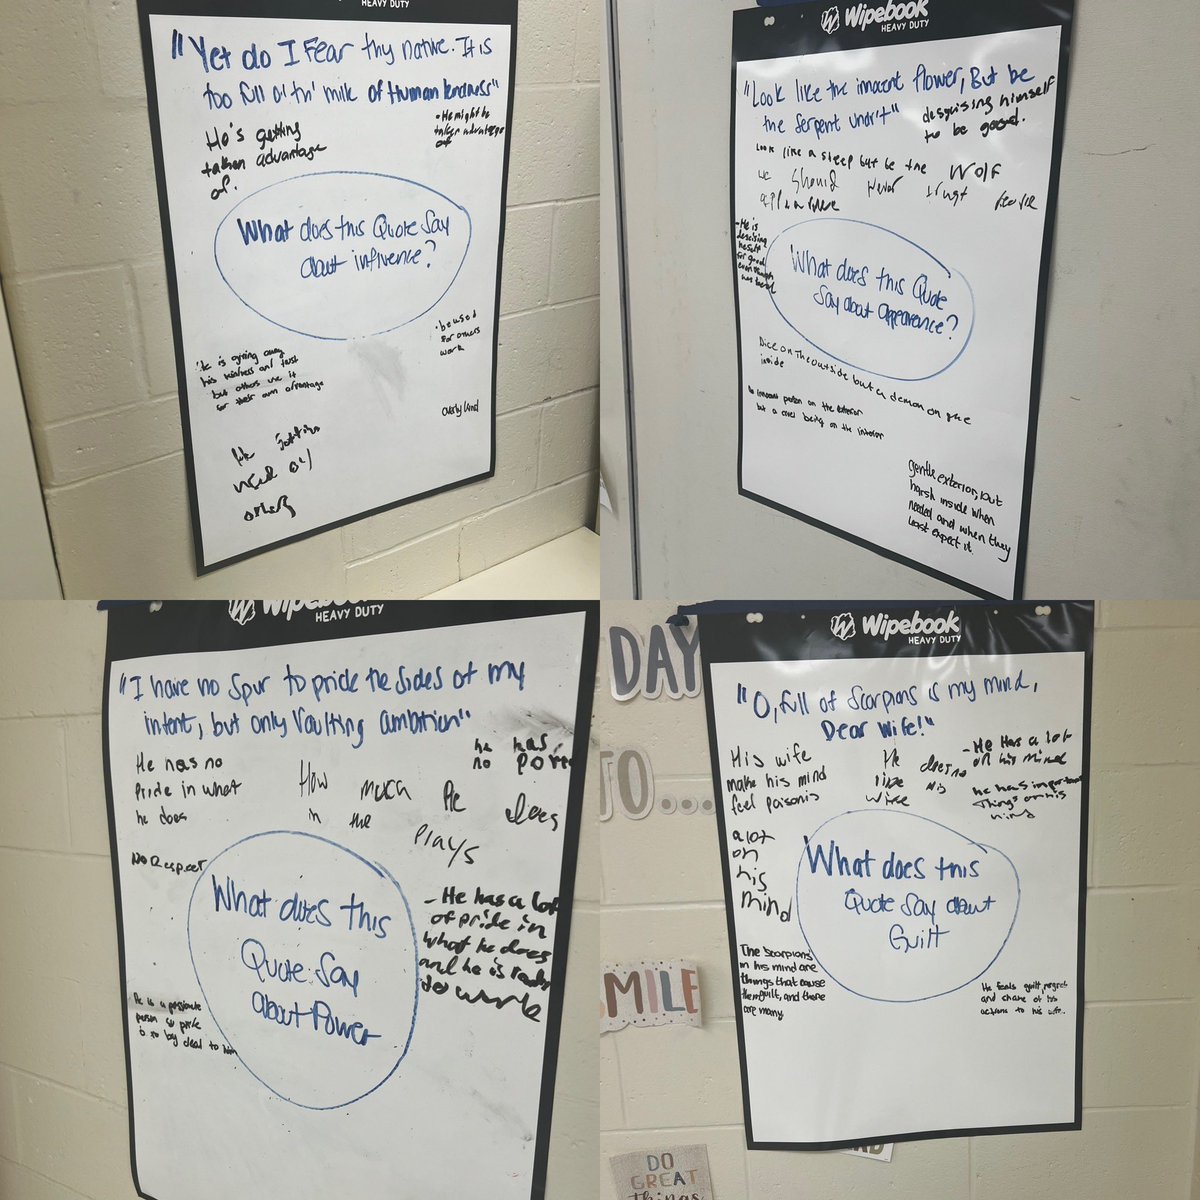 HEAVY DUTY
"Yet do I Fear thy native. It is
too full o' th' milk of Human kindness"
He's getting
taken advantage
of.
- He might be
taken advantage
of
What does this Quote Say
about influence?
· be used
for others
work
He is giving away
his kindness and trust
but others use it
for their own advantage
overly kind
He
used by
others
Wipebook
HEAVY DUTY
"Look like the innocent flower, But be
the serpent und't"
desguising himself
to be good.
Look like a sleep but be the Wolf
we should never trust people
- He is
for good
was bad
What does this Quote
Say about appearence?
on the outside but a demon on the
inside
innocent person on the exterior
but a cruel being on the interior
gentle exterior, but
harsh inside when
needed and when they
least expect it.
Wipebook
HEAVY DUTY
"I have no Spur to prick the sides of my
intent, but only Vaulting ambition"
He has no
Pride in what
he does
How much He does
in the Plays
he has
no power
No Respect
What does this
Quote Say
about Power
- He has a lot
of pride in
what he does
and he is ready
to work
He is a passionate
person so pride
is a big deal to him
Wipebook
HEAVY DUTY
DAY
TO...
SMILE
DO
GREAT
things
"O, full of Scorpions is my mind,
Dear Wife!"
His wife
make his mind
feel poisonis
He does no
like his
wife
- He Has a lot
on his mind
he has important
Things on his
mind
a lot
on
his
mind
What does this
Quote Say about
Guilt
The Scorpions
in his mind are
things that cause
them guilt, and there
are many
He feels guilt, regret
and shame of his
actions to his wife.